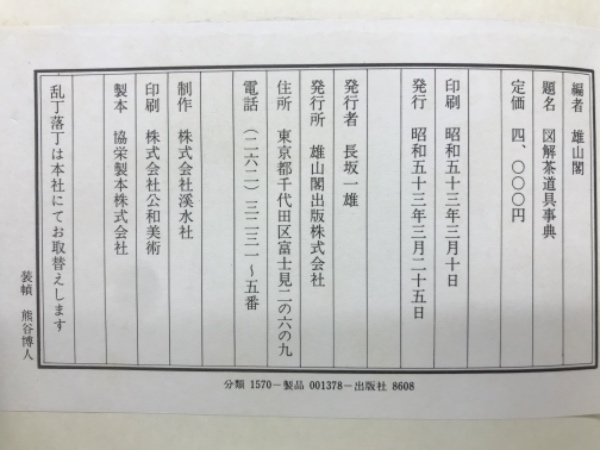 編者 雄山閣
題名 図解茶道具事典
定価 四、〇〇〇円
印刷 昭和五十三年三月十日
発行 昭和五十三年三月二十五日
発行者 長坂一雄
発行所 雄山閣出版株式会社
住所 東京都千代田区富士見二の六の九
電話 (二六二)三二三一～五番
制作 株式会社渓水社
印刷 株式会社公和美術
製本 協栄製本株式会社
乱丁落丁は本社にてお取替えします
装幀 熊谷博人
分類 1570－製品 001378－出版社 8608